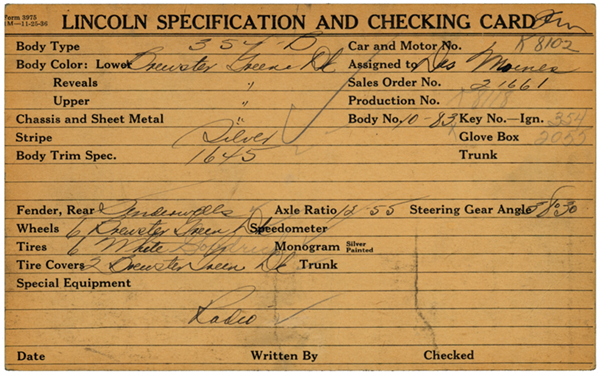 Form 3975
M—11-25-36
LINCOLN SPECIFICATION AND CHECKING CARD
Body Type 354-B Car and Motor No. K8102
Body Color: Lower Brewster Green Dk Assigned to Des Moines
Reveals " Sales Order No. 21661
Upper " Production No. K 8118
Chassis and Sheet Metal " Body No. 10-83 Key No.—Ign. 354
Stripe Silver Glove Box 2055
Body Trim Spec. 1645 Trunk
Fender, Rear Fenderwells Axle Ratio 12-55 Steering Gear Angle 58:30
Wheels 6 Brewster Green Dk Speedometer
Tires 6 White Monogram Silver Painted
Tire Covers 2 Brewster Green Dk Trunk
Special Equipment
Radio
Date Written By Checked